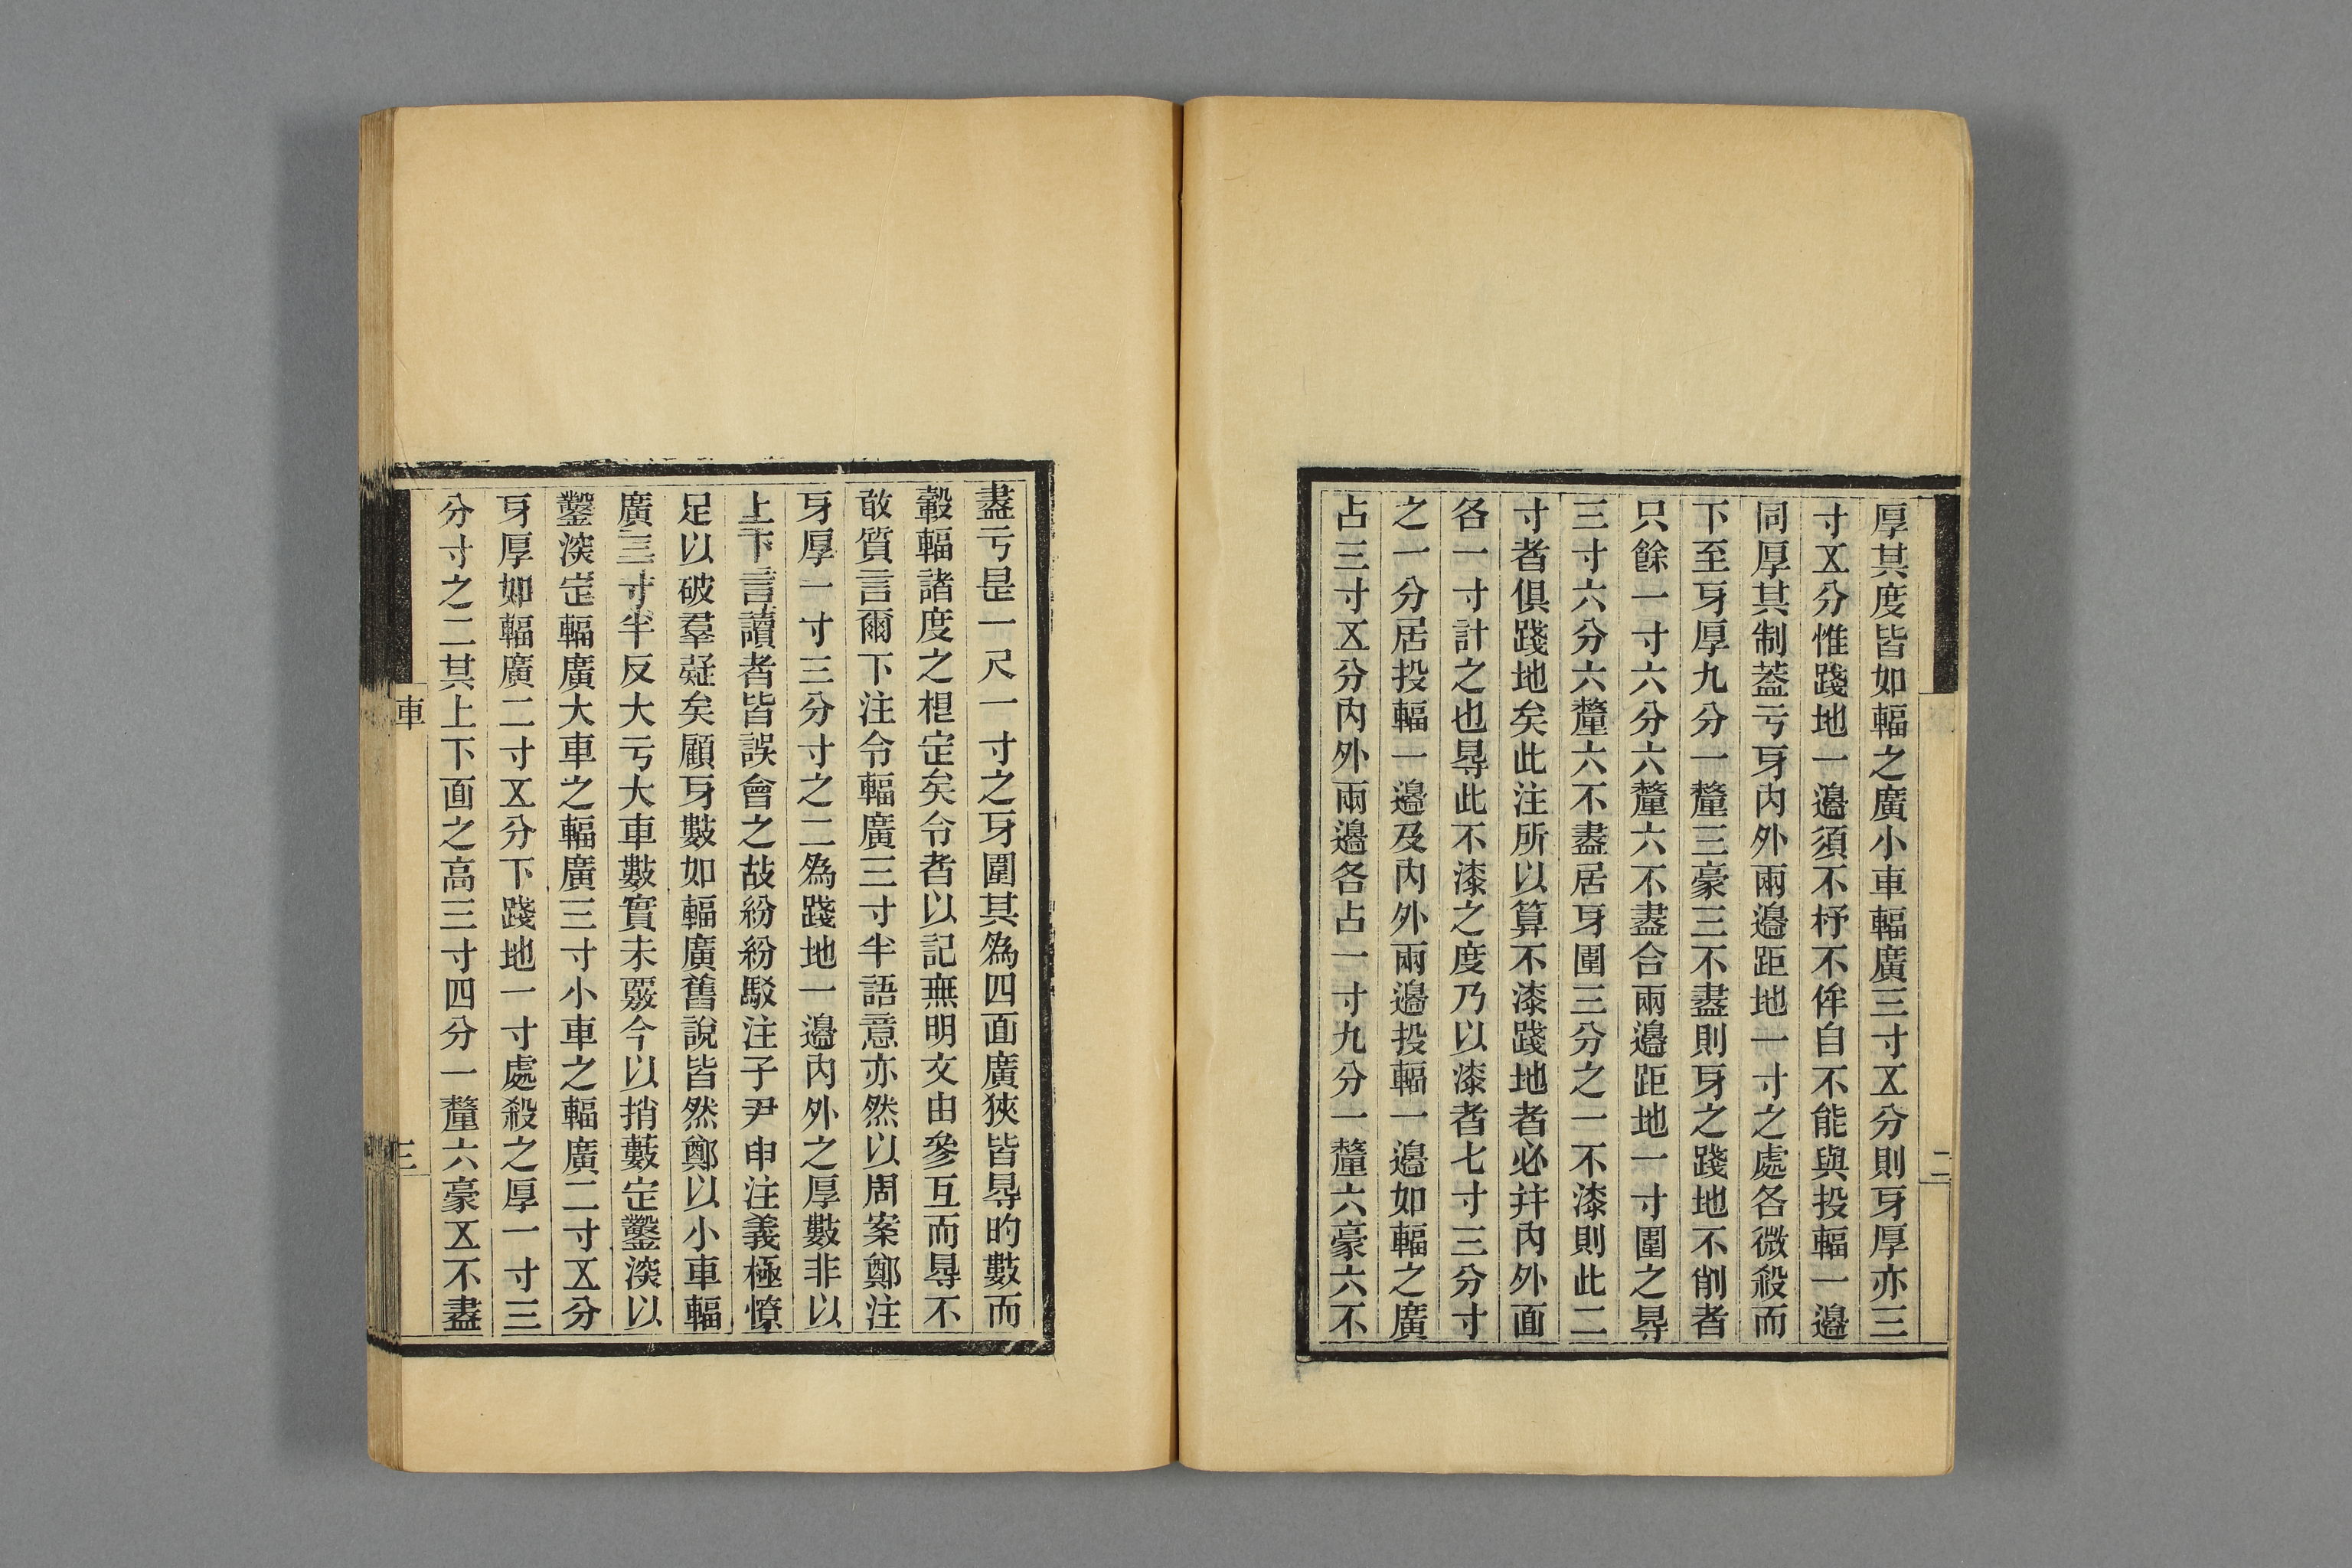 厚其度皆如輻之廣小車輻廣三寸㐅分則牙厚亦三
寸㐅分惟踐地一邊須不杼不侔自不能與投輻一邊
同厚其制葢亏牙內外兩邊距地一寸之處各微殺而
下至牙厚九分一釐三豪三不盡則牙之踐地不削者
只餘一寸六分六釐六不盡合兩邊距地一寸圍之㝵
三寸六分六釐六不盡居牙圍三分之一不漆則此二
寸者俱踐地矣此注所以算不漆踐地者必幷內外面
各一寸計之也㝵此不漆之度乃以漆者七寸三分寸
之一分居投輻一邊及內外兩邊投輻一邊如輻之廣
占三寸㐅分內外兩邊各占一寸九分一釐六豪六不
二
盡亏是一尺一寸之牙圍其為四面廣狹皆㝵旳數而
轂輻諸度之相定矣令者以記無明文由參互而㝵不
敢質言爾下注令輻廣三寸半語意亦然以周案鄭注
牙厚一寸三分寸之二為踐地一邊內外之厚數非以
上下言讀者皆誤會之故紛紛駁注子尹申注義極憭
足以破羣疑矣顧牙數如輻廣舊說皆然鄭以小車輻
廣三寸半反大亏大車數實未覈今以捎藪定鑿深以
鑿深定輻廣大車之輻廣三寸小車之輻廣二寸㐅分
牙厚如輻廣二寸㐅分下踐地一寸處殺之厚一寸三
分寸之二其上下面之高三寸四分一釐六豪㐅不盡
車
三